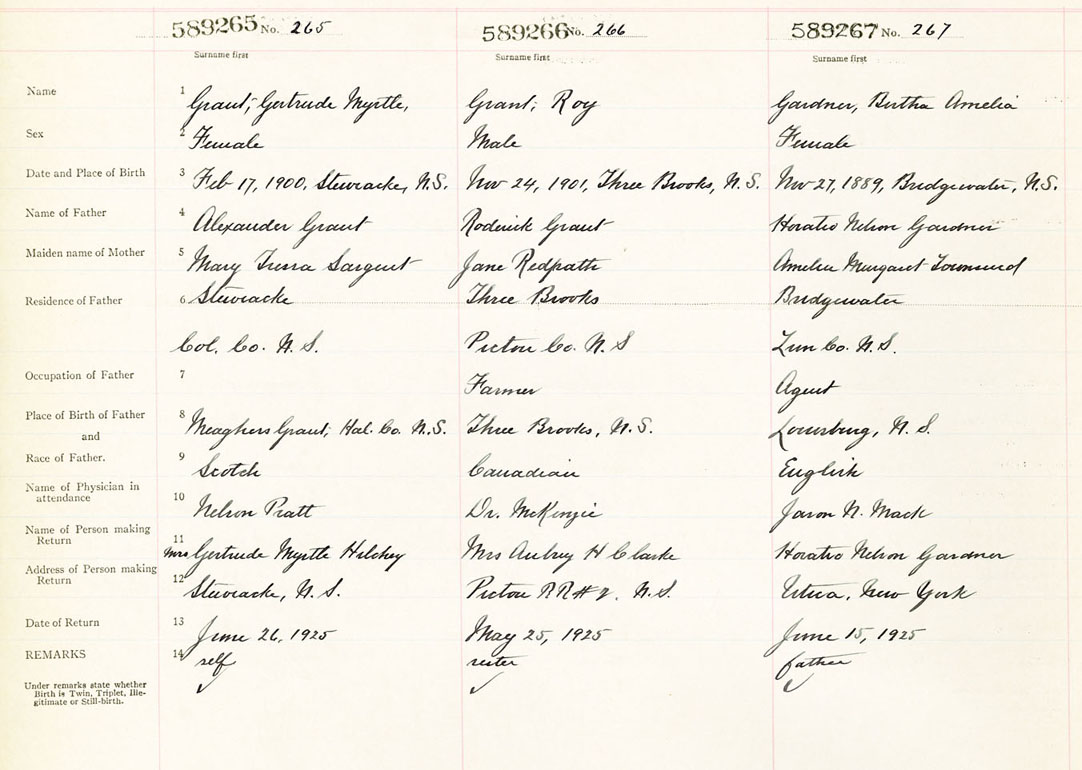 589265 No. 265
589266 No. 266
589267 No. 267
Surname first
Surname first
Surname first
Name 1 Grant, Gertrude Myrtle, Grant, Roy Gardner, Bertha Amelia
Sex 2 Female Male Female
Date and Place of Birth 3 Feb 17, 1900, Stewiacke, N.S. Nov 24, 1901, Three Brooks, N.S. Nov 27, 1889, Bridgewater, N.S.
Name of Father 4 Alexander Grant Roderick Grant Horatio Nelson Gardner
Maiden name of Mother 5 Mary Sargent Jane Redpath Amelia Margaret Townsend
Residence of Father 6 Stewiacke Three Brooks Bridgewater
Col. Co. N.S. Pictou Co. N.S Lun Co. N.S.
Occupation of Father 7 Farmer Agent
Place of Birth of Father 8 Meaghers Grant, Hal. Co. N.S. Three Brooks, N.S. Louisburg, N.S.
and
Race of Father. 9 Scotch Canadian English
Name of Physician in
attendance 10 Nelson Pratt Dr. McKenzie Jason N. Mack
Name of Person making
Return 11 Mrs Gertrude Myrtle Hilchey Mrs Aubrey H Clarke Horatio Nelson Gardner
Address of Person making
Return 12 Stewiacke, N.S. Pictou RR#2, N.S. Utica, New York
Date of Return 13 June 26, 1925 May 25, 1925 June 15, 1925
REMARKS 14 self sister father
Under remarks state whether
Birth is Twin, Triplet, Ille-
gitimate or Still-birth.